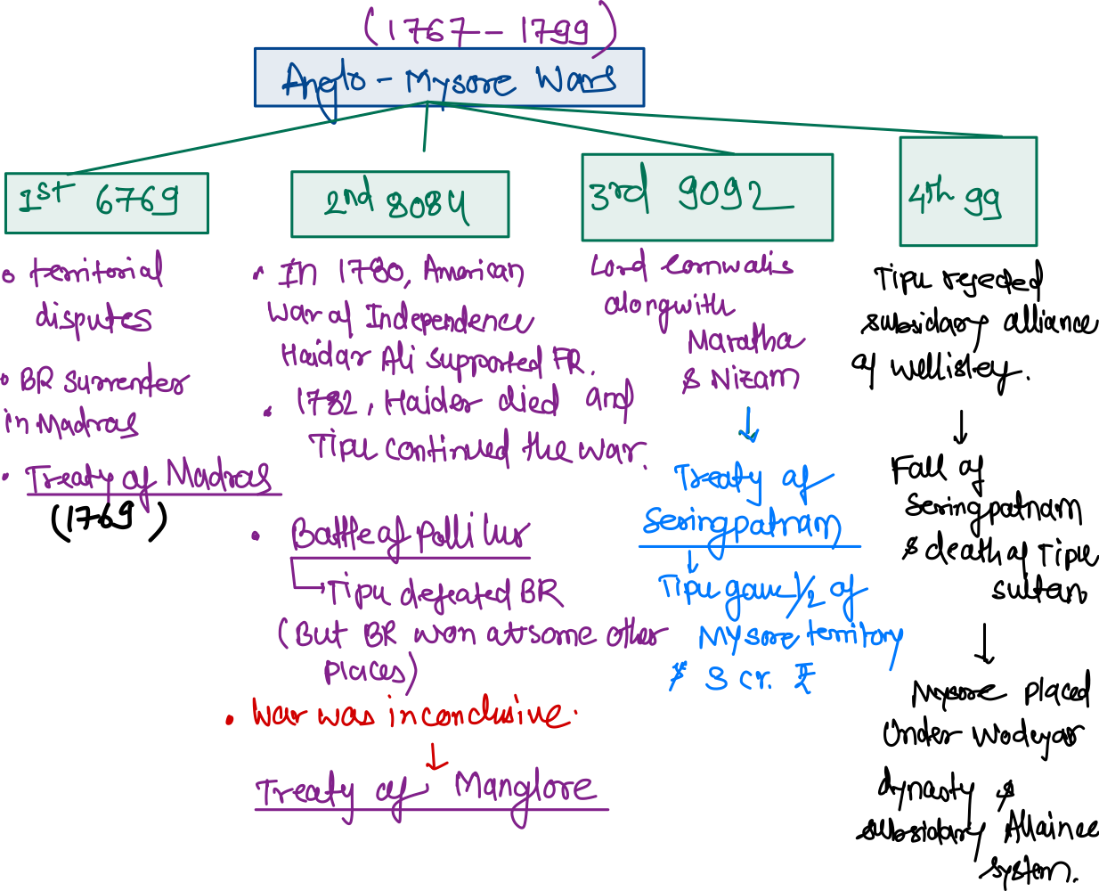 (1767 - 1799)
Anglo - Mysore Wars
1st 6769
territorial
disputes
BR surrender
in Madras
Treaty of Madras
(1769)
2nd 8084
In 1780, American
War of Independence
Haidar Ali supported FR.
1782, Haider died and
Tipu continued the war.
Battle of Pollilur
Tipu defeated BR
(But BR won at some other
places)
War was inconclusive.
Treaty of Manglore
3rd 9092
Lord Cornwalis
alongwith
Maratha
& Nizam
Treaty of
Seringpatnam
Tipu gave 1/2 of
Mysore territory
& 3 cr. ₹
4th 99
Tipu rejected
subsidary alliance
of Wellisley.
Fall of
Seringpatnam
& death of Tipu
sultan
Mysore placed
Under Wodeyar
dynasty &
subsidary Allaince
system.